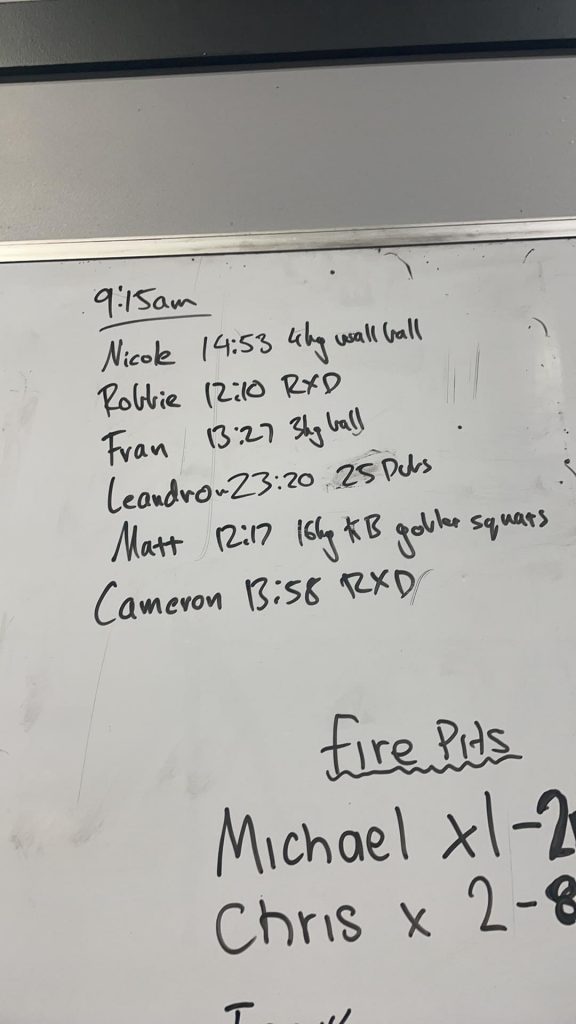 9:15am
Nicole 14:53 4kg wall ball
Robbie 12:10 RXD
Fran 13:27 3kg ball
Leandro 23:20 25 Dubs
Matt 12:17 16kg KB goblet squats
Cameron 13:58 RXD
Fire Pits
Michael x1-2
Chris x 2-8